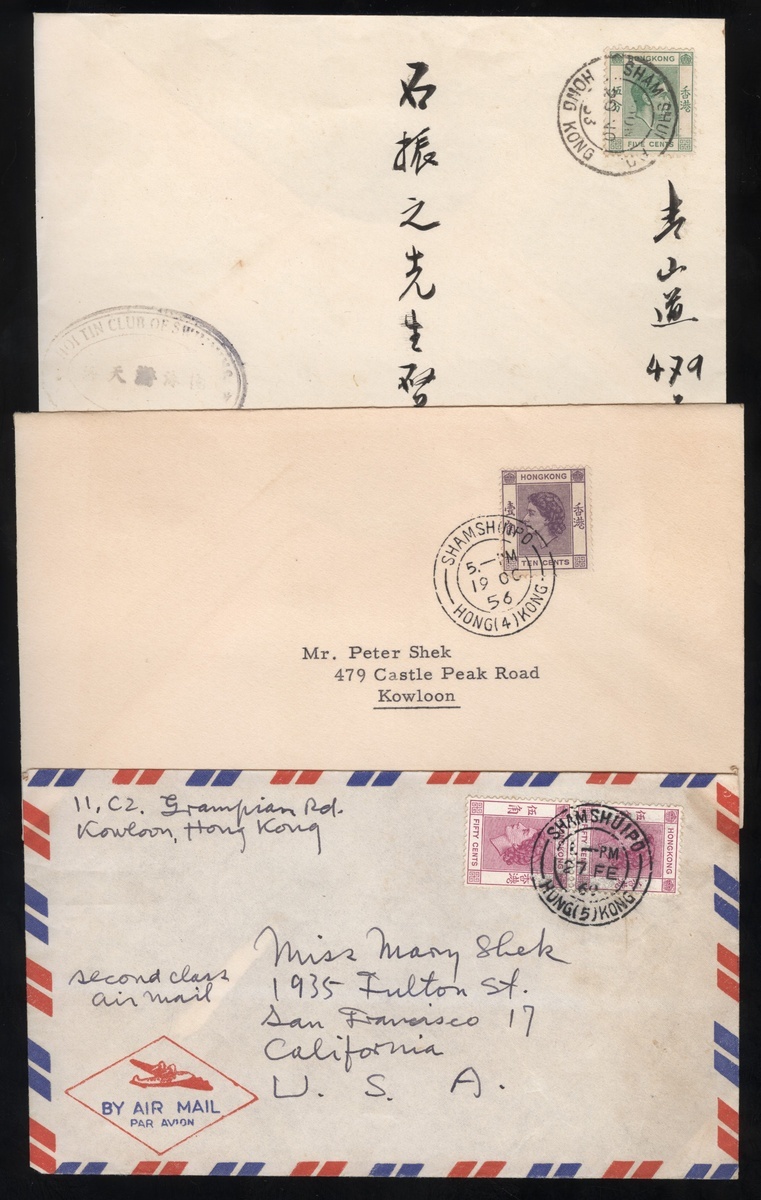 HONGKONG
香港
伍分
FIVE CENTS
SHAM SHUI
HONG KONG
53
石振之先生啓
青山道
479
HOI TIN CLUB OF
天
泳
HONGKONG
壹
香港
TEN CENTS
SHAMSHUIPO
5.—PM
19 OC
56
HONG(4)KONG
Mr. Peter Shek
479 Castle Peak Road
Kowloon
11, C2. Grampian Rd.
Kowloon, Hong Kong
FIFTY CENTS
伍角
香港
HONGKONG
SHAMSHUIPO
—PM
27 FE
HONG(5)KONG
Miss Mary Shek
1935 Fulton St.
San Francisco 17
California
U. S. A.
second class
air mail
BY AIR MAIL
PAR AVION